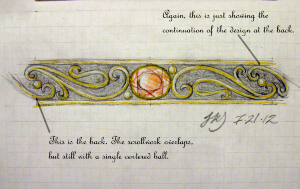 Again, this is just showing the
continuation of the design at the back.
7-21-12
This is the back. The scrollwork overlaps,
but still with a single centered ball.